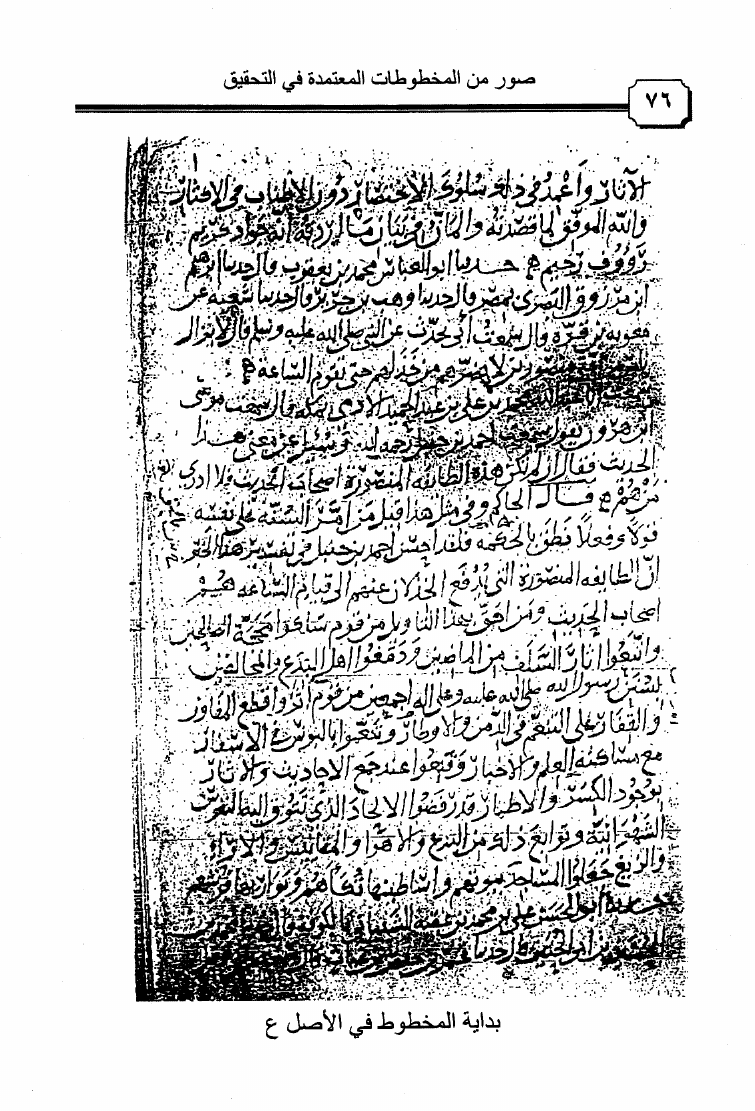 صور من المخطوطات المعتمدة في التحقيق
٧٦
الآثار وأعمد في ذلك سلوك الاختصار دون الإطناب في الإكثار
والله الموفق لما قصدته والمان في بيان ما أردته إنه جواد كريم
رؤوف رحيم حدثنا أبو العباس محمد بن يعقوب قال حدثنا إبرهيم
ابن مرزوق البصري بمصر قال حدثنا وهب بن جرير قال حدثنا شعبة عن
معوية بن قرة قال سمعت أبي يحدث عن النبي صلى الله عليه وسلم قال لا يزال
منصورين لا يضرهم من خذلهم حتى تقوم الساعة
محمد بن علي بن عبد الحميد الآدمي بمكة قال سمعت موسى
ابن هرون يقول سمعت أحمد بن حنبل رحمه الله وسئل عن معنى هذا
الحديث فقال إن لم تكن هذه الطائفة المنصورة أصحاب الحديث فلا أدري
من هم قال الحاكم وفي مثل هذا قيل من أمر السنة على نفسه
قولا وفعلا نطق بالحكمة فلقد أحسن أحمد بن حنبل في تفسير هذا الخبر
أن الطايفة المنصورة التي يدفع الخذلان عنهم إلى قيام الساعة هم
أصحاب الحديث ومن أحق بهذا التأويل من قوم سلكوا محجة الصالحين
واتبعوا آثار السلف من الماضين ودمغوا أهل البدع والمخالفين
بسنن رسول الله صلى الله عليه وعلى آله أجمعين من قوم آثروا قطع المفاوز
والقفار على التنعم في الدمن والأوطار وتنعموا بالبؤس في الأسفار
مع مساكنة العلم والأخبار وقنعوا عند جمع الأحاديث والآثار
بوجود الكسر والأطمار قد رفضوا الإلحاد الذي تتوق إليه النفوس
الشهوانية وتوابع ذلك من البدع والأهوا والمقاييس والآراء
والزيغ جعلوا المساجد بيوتهم وأساطينها تكاهم وبواريها فرشهم
حدثنا أبو الحسن علي بن محمد بن عقبة الشيباني بالكوفة قال حدثنا محمد بن
بداية المخطوط في الأصل ع